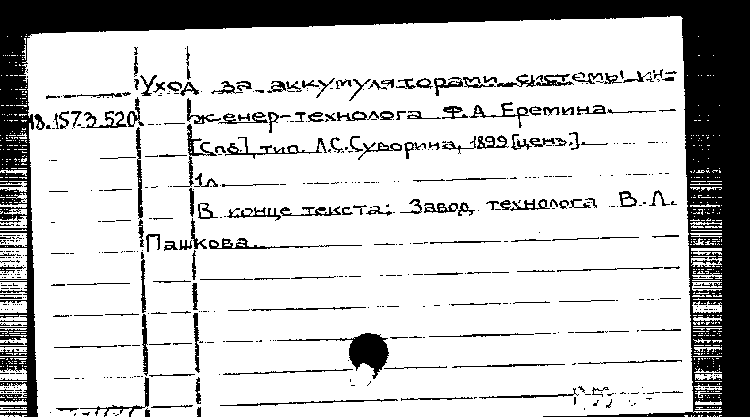 Уход за аккумуляторами системы ин-
18.157.3.520 женер-технолога Ф.А. Еремина.
[Спб], тип. А.С.Суворина, 1899 [ценз.].
1л.
В конце текста: Завод технолога В.Л.
Пашкова.